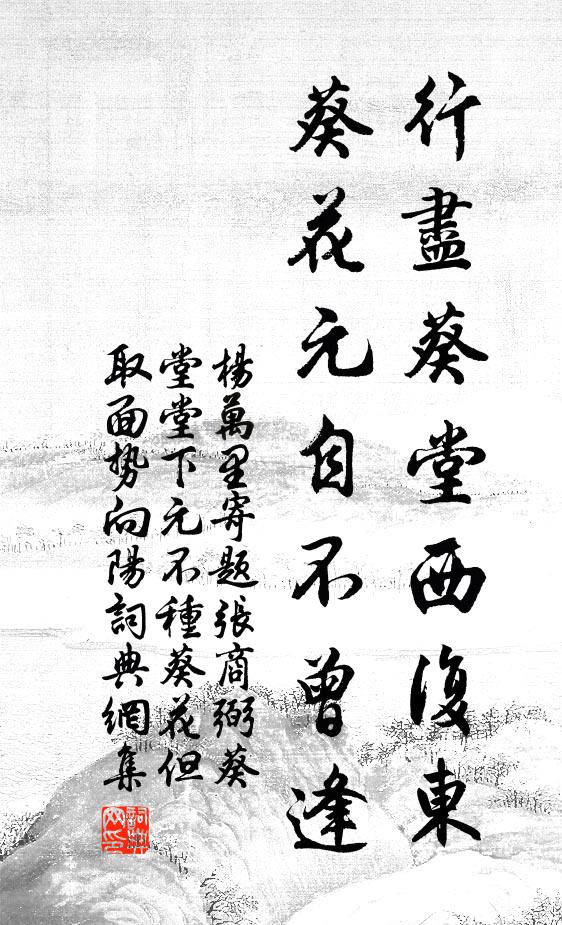 行盡葵堂西復東
葵花元自不曾逢
楊萬里寄题張商弼葵
堂堂下元不種葵花但
取面势向陽詞典網集